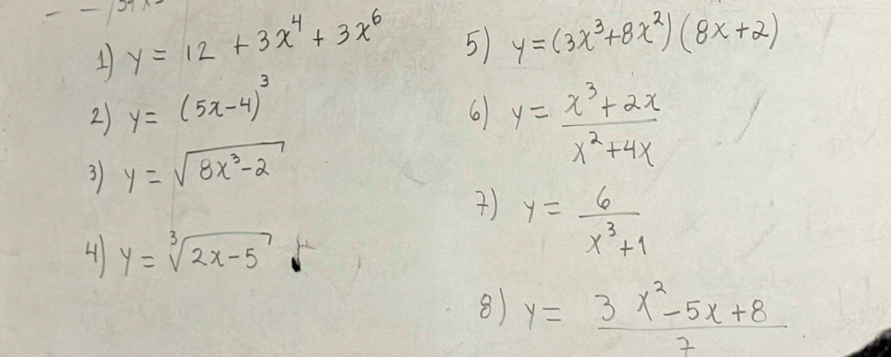 1) y = 12 + 3x⁴ + 3x⁶
2) y = (5x-4)³
3) y = √(8x³-2)
4) y = ∛(2x-5)
5) y = (3x³+8x²)(8x+2)
6) y = (x³+2x)/(x²+4x)
7) y = 6/(x³+1)
8) y = (3x²-5x+8)/7